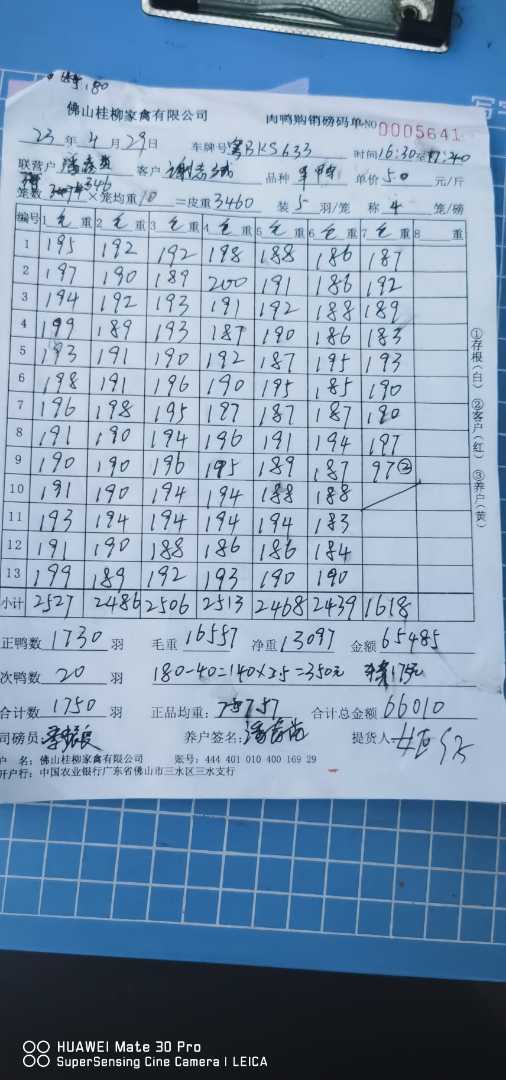 佛山桂柳家禽有限公司 肉鸭购销磅码单 NO 0005641
23年4月29日 车牌号 粤BKS633 时间16:30至17:40
联营户 客户 品种 单价50元/斤
笼数 346 ×笼均重10=皮重3460 装5羽/笼 称4笼/磅
编号 1 毛重 2 毛重 3 毛重 4 毛重 5 毛重 6 毛重 7 毛重 8 重
1 195 192 192 198 188 186 187
2 197 190 189 200 191 186 192
3 194 192 193 191 192 188 189
4 199 189 193 187 190 186 183
5 193 191 190 192 187 195 193
6 198 191 196 190 195 185 190
7 196 198 195 197 187 187 190
8 191 190 194 196 191 194 197
9 190 190 196 195 189 187 97②
10 191 190 194 194 188 188
11 193 194 194 194 194 183
12 191 190 188 186 186 184
13 199 189 192 193 190 190
小计 2527 2486 2506 2513 2468 2439 1618
正鸭数1730羽 毛重16557 净重13097 金额65485
次鸭数20羽 180-40=140×25=350元 175元
合计数1750羽 正品均重:757 合计总金额66010
司磅员: 养户签名: 提货人
户 名:佛山桂柳家禽有限公司 账号:444 401 010 400 169 29
开户行:中国农业银行广东省佛山市三水区三水支行
①存根(白) ②客户(红) ③养户(黄)
HUAWEI Mate 30 Pro
SuperSensing Cine Camera | LEICA